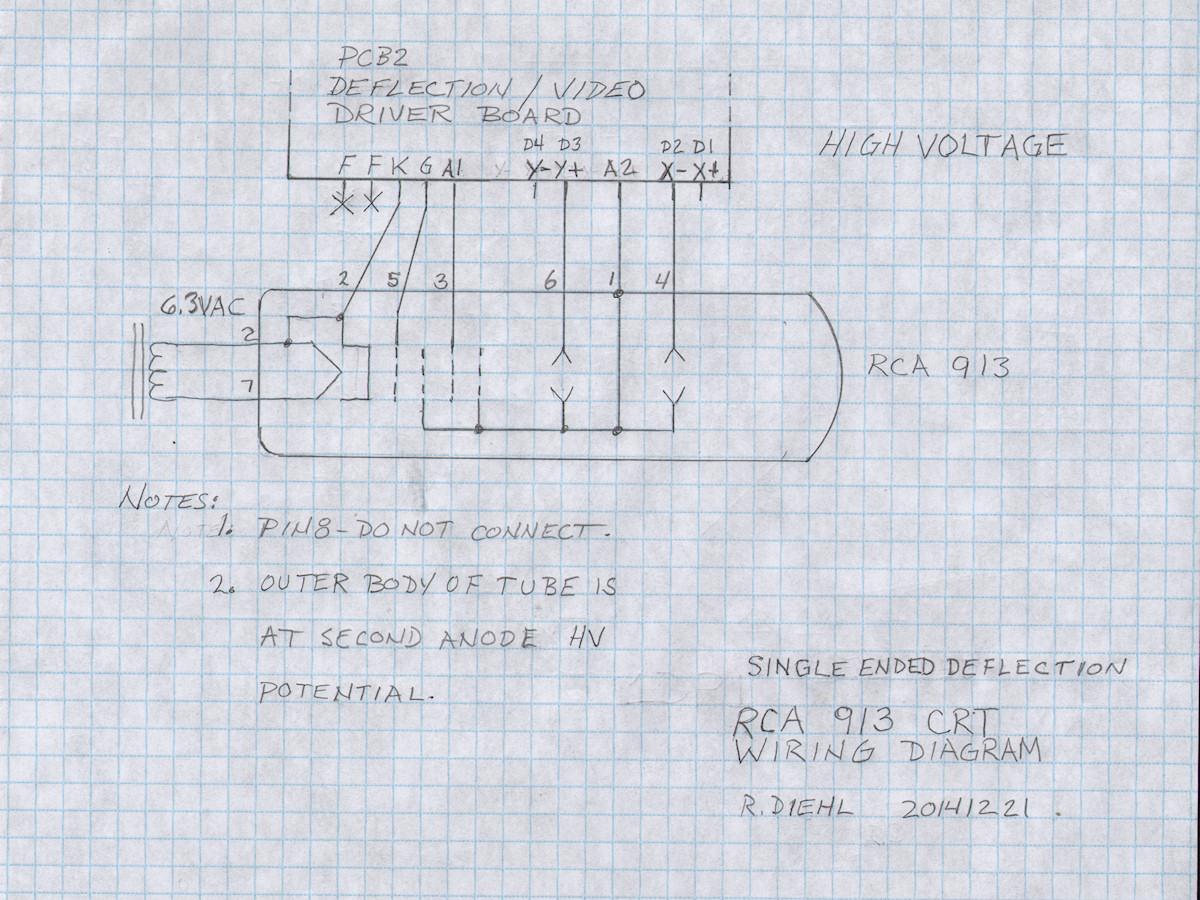 PCB2
DEFLECTION / VIDEO
DRIVER BOARD
HIGH VOLTAGE
D4 D3 D2 D1
F F K G A1 Y Y- Y+ A2 X- X+
2 5 3 6 1 4
6.3VAC
2
7
RCA 913
NOTES:
1. PIN8-DO NOT CONNECT.
2. OUTER BODY OF TUBE IS
AT SECOND ANODE HV
POTENTIAL.
SINGLE ENDED DEFLECTION
RCA 913 CRT
WIRING DIAGRAM
R.DIEHL 20141221.